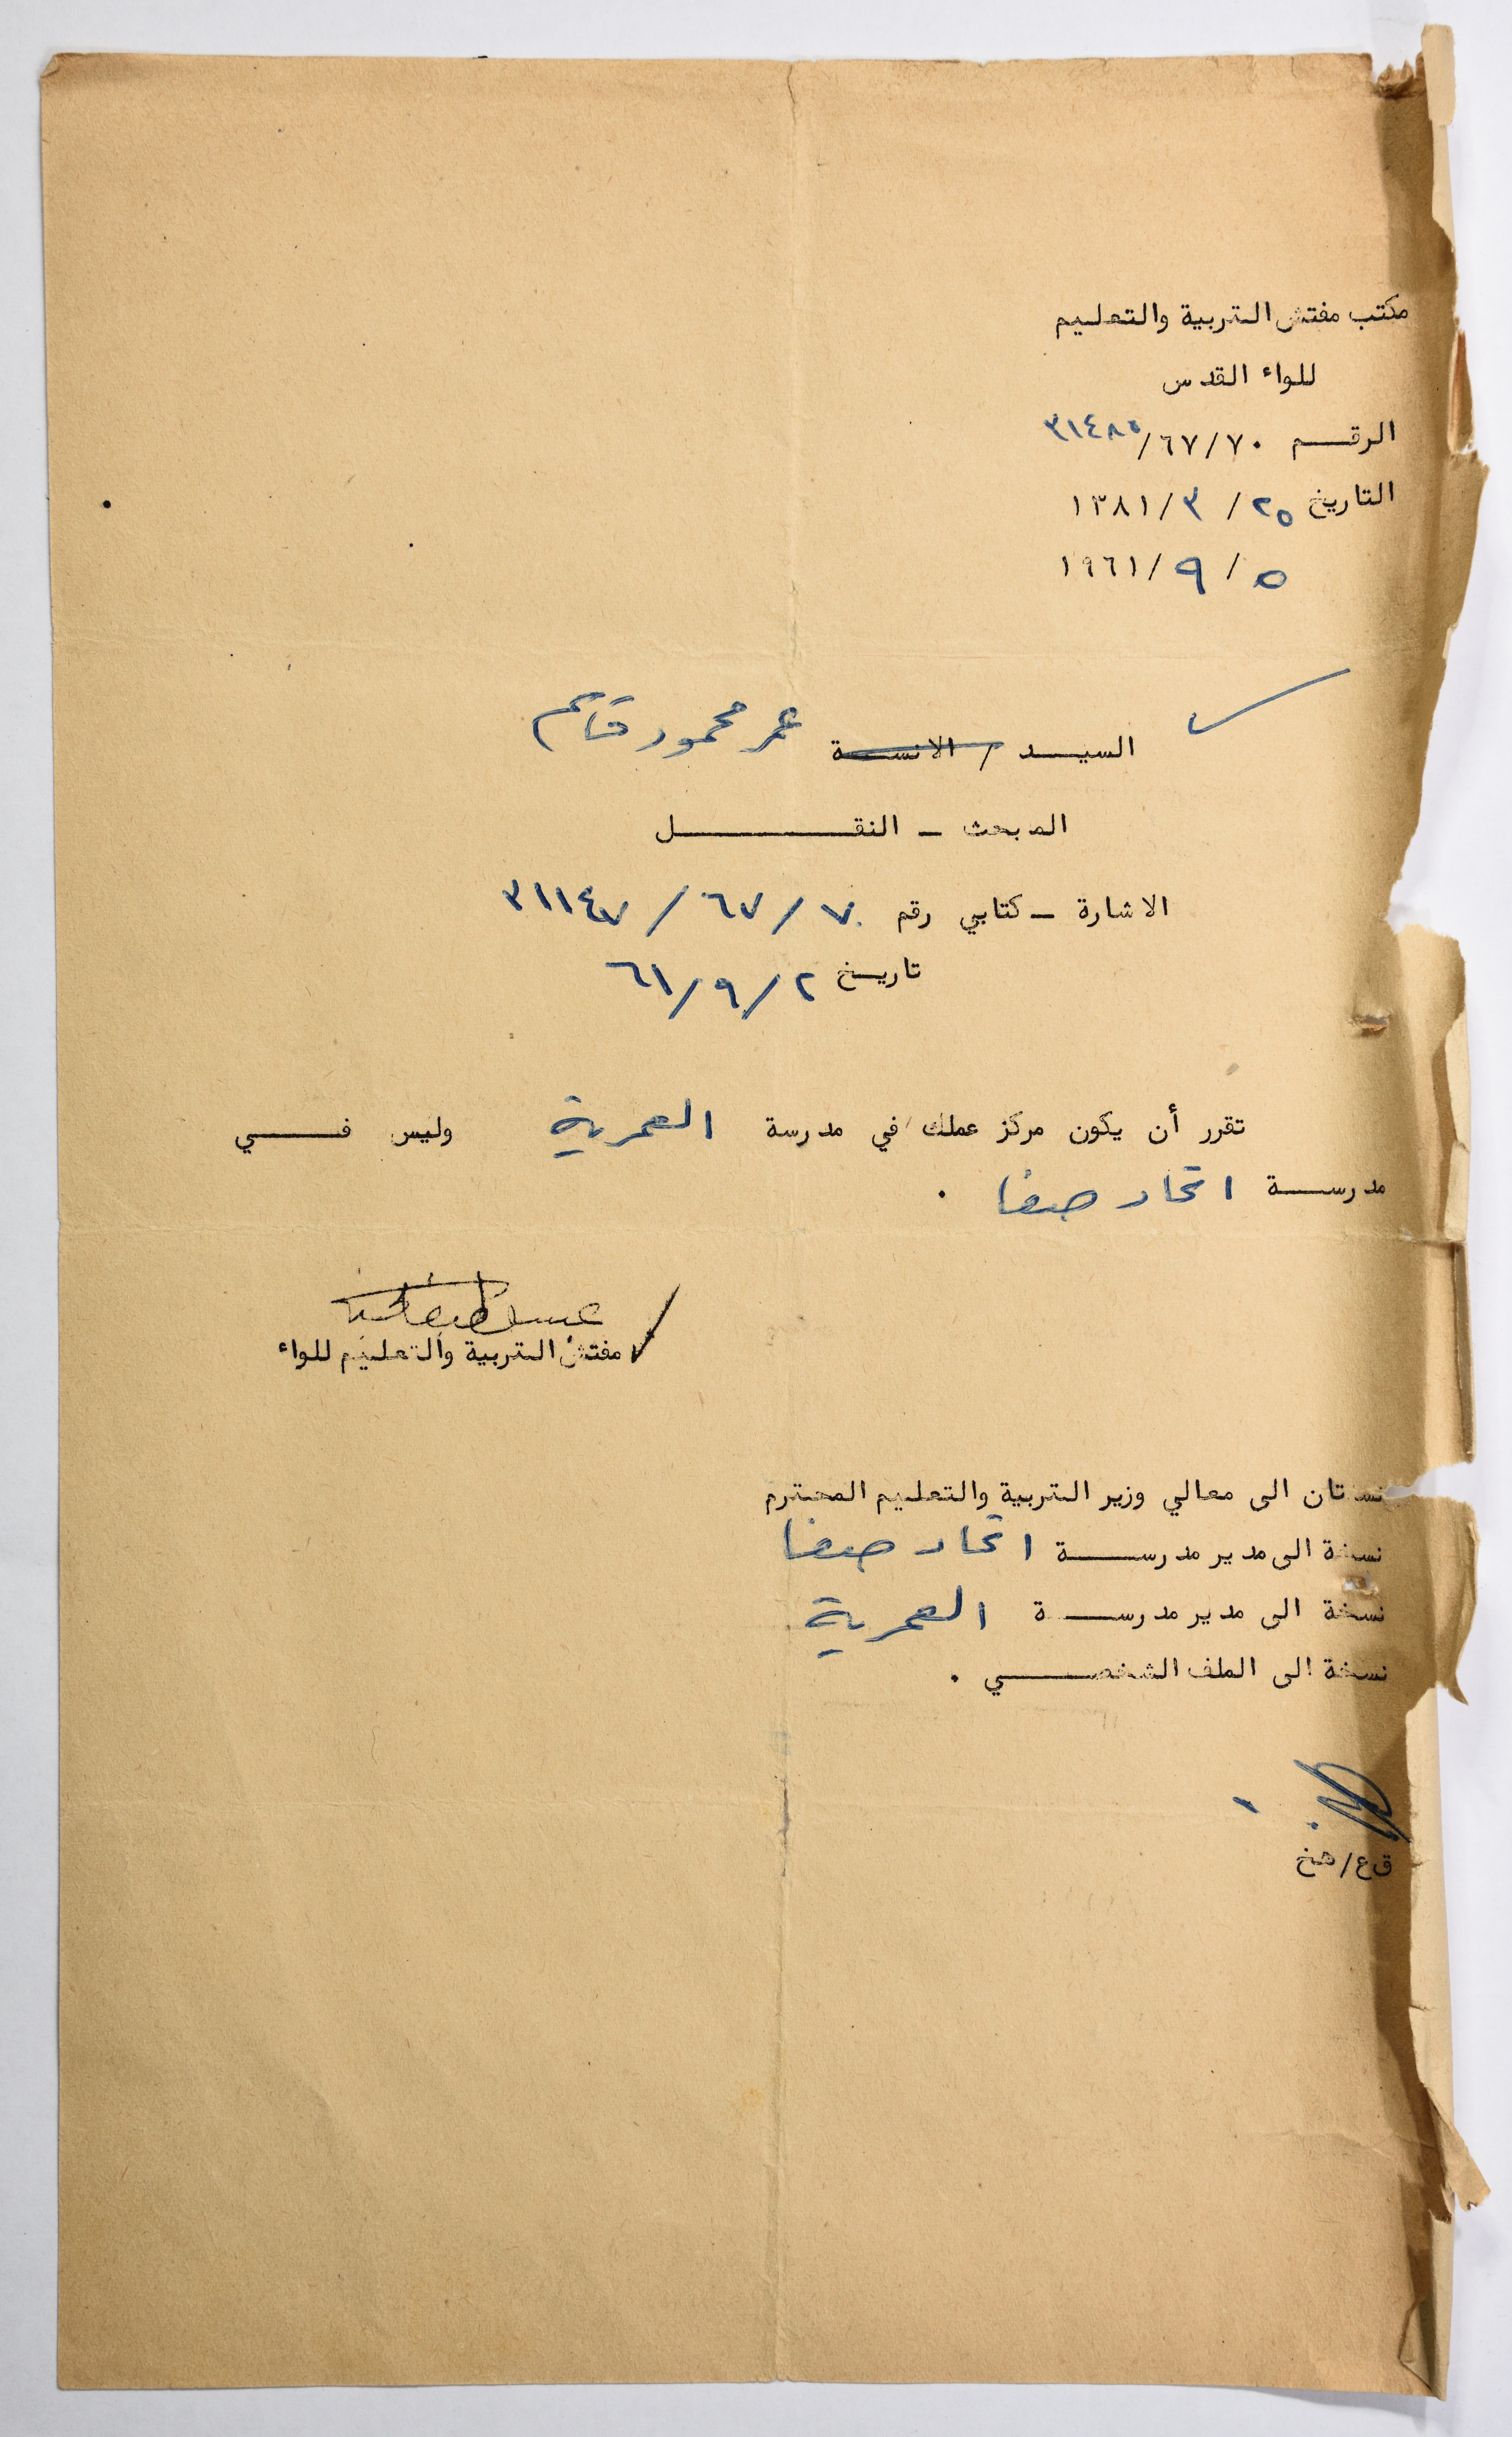 مكتب مفتش التربية والتعليم
للواء القدس
الرقم ٣١٤٨٥/٦٧/٧٠
التاريخ ٢٥ / ٣ /١٣٨١
٥ / ٩ /١٩٦١
السيد / الانسة عمر محمود قاسم
المبحث - النقل
الاشارة - كتابي رقم ٣١١٤٧/٦٧/٧٠
تاريخ ٦١/٩/٢
تقرر أن يكون مركز عملك في مدرسة العمرية وليس في
مدرسة اتحاد صفا .
مفتش التربية والتعليم للواء
نسختان الى معالي وزير التربية والتعليم المحترم
نسخة الى مدير مدرسة اتحاد صفا
نسخة الى مدير مدرسة العمرية
نسخة الى الملف الشخصي .
ق ع/